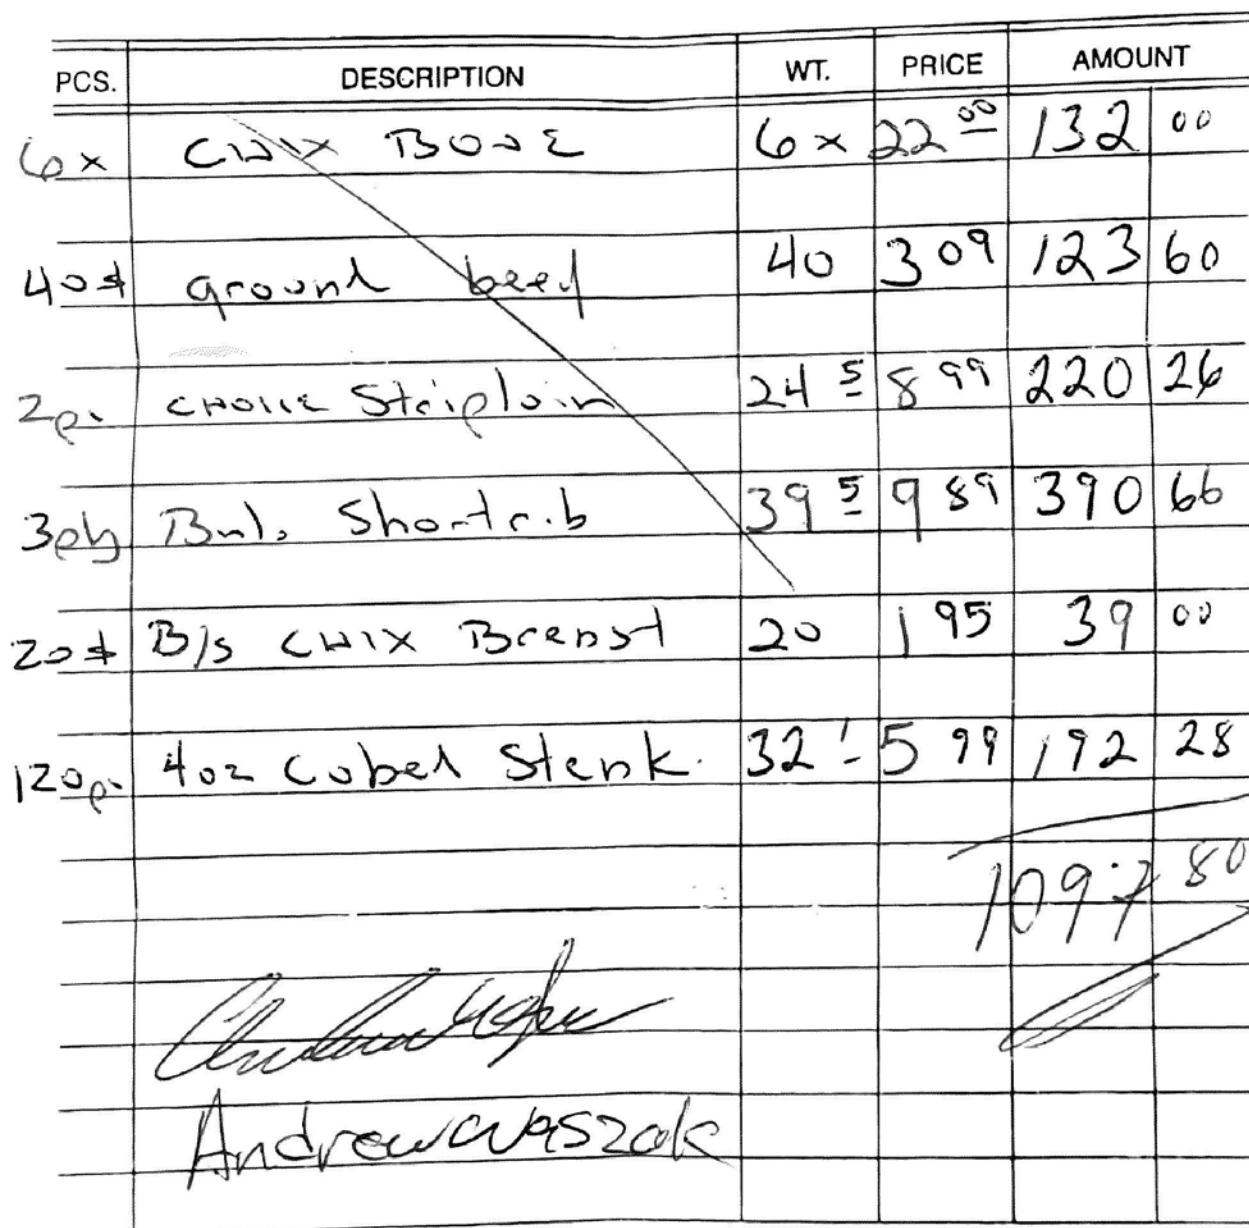 PCS. DESCRIPTION WT. PRICE AMOUNT
6x CHIX BONE 6x 22 00 132 00
40# ground beef 40 3 09 123 60
2p. CHOICE Striploin 24 5 8 99 220 26
Bnl. Shortrib 39 5 9 89 390 66
20# B/S CHIX Breast 20 1 95 39 00
120p. 4oz Cubed Steak. 32 1 5 99 192 28
1097 80
Andrew Waszak